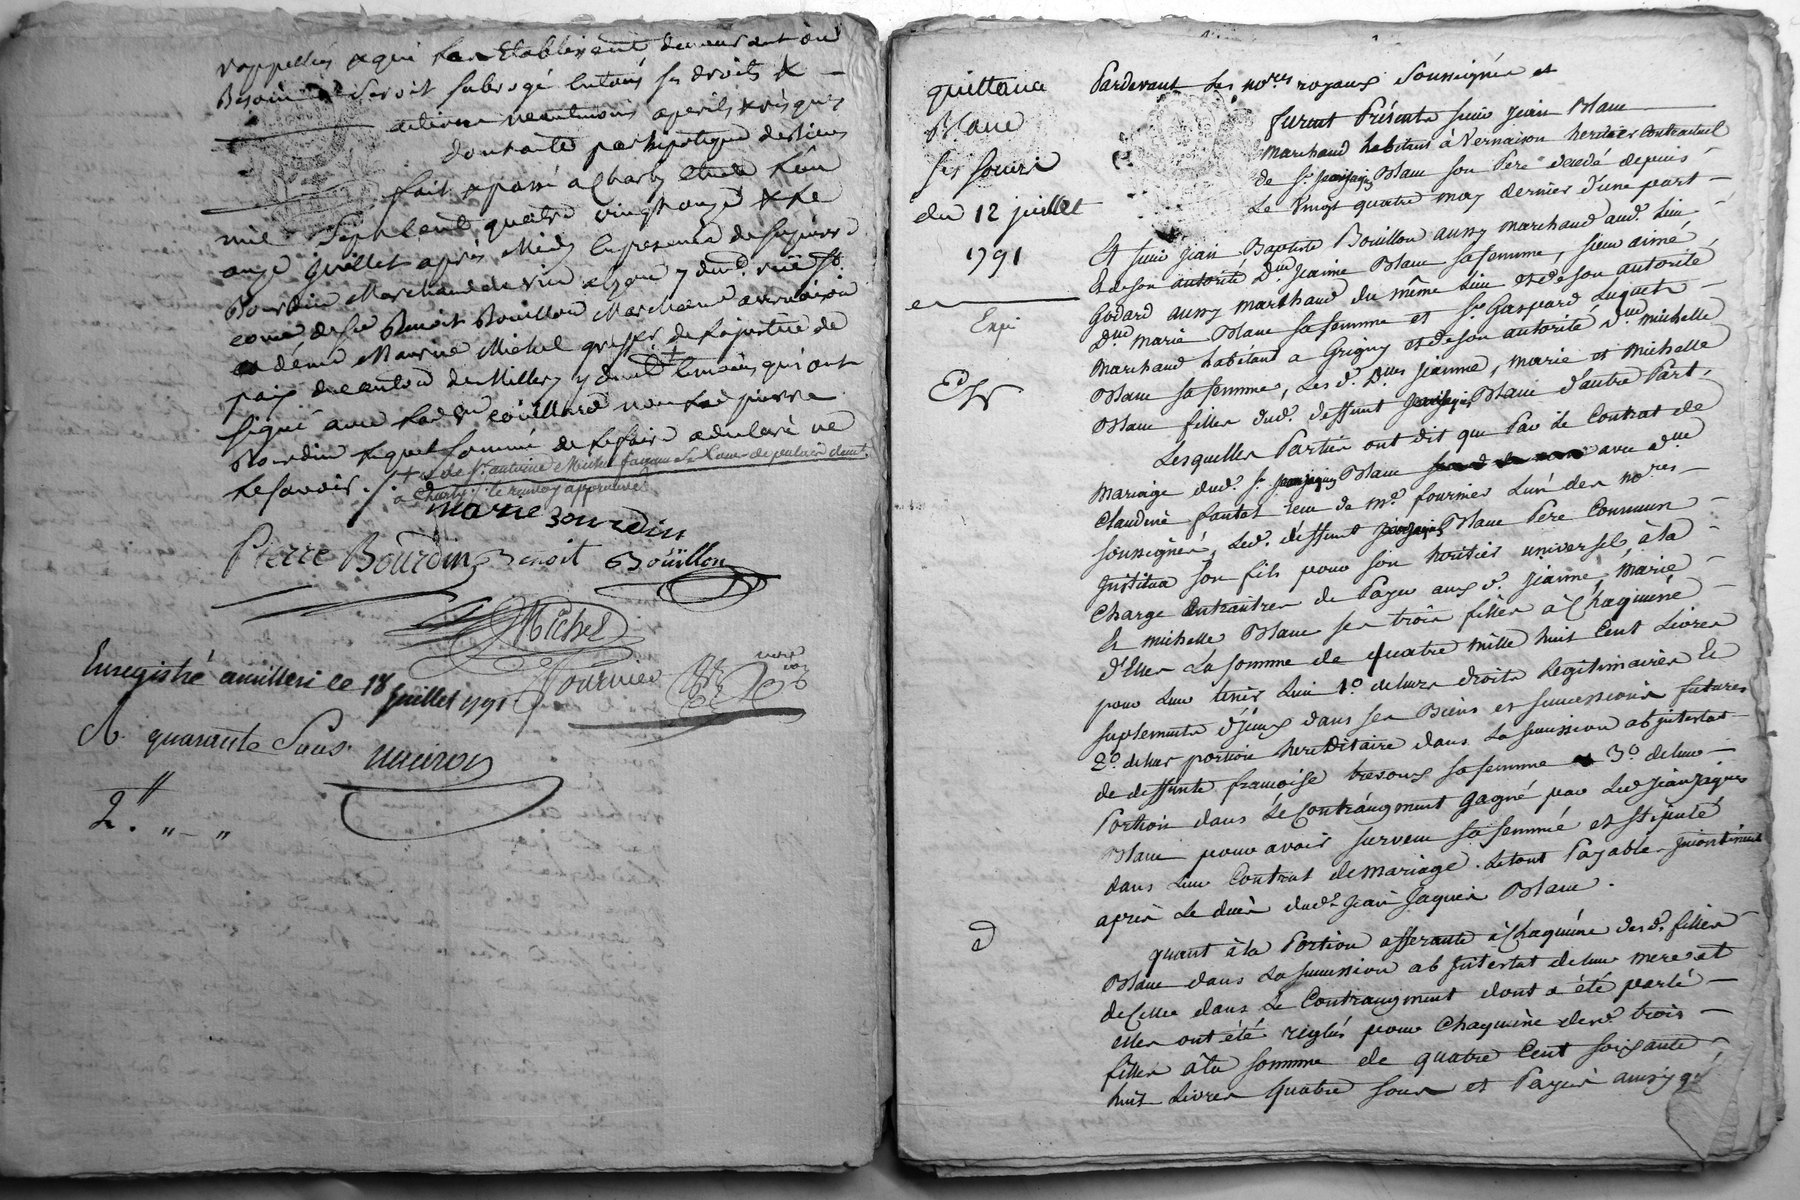 rappellés & qui les Etablissent demeurant où
Besoin Seroit subrogé en tous ses droits &
actions neantmoins a perils & risques
dont acte par hipoteque de biens
fait & passé a Charly etude l'an
mil Sept Cent quatre vingt onze & le
onze Juillet après Midy En presence de
Bourdin Marchand de vin a Lyon y dem.t ruë St
come de Sr Benoit Bouillon Marchand
& de me Maurice Michel greffier de la justice de
paix du canton de Millery y dem.t + temoins qui ont
signé avec non led pierre
Bourdin lequel sommé de le faire a declaré ne
le savoir ./. + & de Sr antoine Michel
à Charly ./. le renvoy approuvé
marie Bourdin
Pierre Bourdin Benoit Bouillon
Michel
Fournier
Enregistré a milleri ce 18 Juillet 1791
R. quarante Sous
2 " " — "
quittance
Blanc
ses soeurs
du 12 juillet
1791
Expé
Pardevant Les no.res royaux Soussignés et
furent Présents sieur jean Blanc
Marchand habitant à Vernaison heritier Contractuel
de Sr jean jaques Blanc son Pere decedé depuis
Le Vingt quatre may dernier d'une part
Et sieur jean Baptiste Bouillon aussy marchand aud. lieu
& de son autorité D.lle jeanne Blanc sa femme, sieur aimé
Godard aussy marchand du même lieu et de son autorité
D.lle marie Blanc sa femme et Sr Gaspard Luquet
Marchand habitant a Grigny et de son autorité D.lle michelle
Blanc sa femme, Les d. D.lles jeanne, marie et michelle
Blanc filles dud. deffunt jean jaques Blanc d'autre Part,
Lesquelles Parties ont dit que Par le Contrat de
Mariage dud. Sr jean jaques Blanc avec d.lle
Claudine fantet reçu de M.e fournier L'un des no.res
soussignés, Led. deffunt jean jaques Blanc Pere Commun
Institua son fils pour son heritier universel à la
Charge entr'autres de Payer aux d. jeanne, marie
Et michelle Blanc ses trois filles à Chaquune
d'Elles La somme de quatre mille huit Cent Livres
pour leur tenir lieu 1.o de leurs droits Legitimaires Et
suplements d'jceux dans ses Biens et successions futures
2.o de leur portion hereditaire dans La succession ab intestat
de deffunte françoise tresoux sa femme 3.o de leur
Portion dans Le Contraugment gagné par Led jean jaques
Blanc pour avoir survecu sa femme et stipulé
dans leur Contrat de mariage. Le tout Payable
après Le decès dud. Jean Jaques Blanc.
quant à la Portion afferante à Chaquune des d. filles
Blanc dans La succession ab jntestat de leur mere et
de Celle dans Le Contraugment dont a été parlé
elles ont été reglés pour Chaquune des d trois
filles à la somme de quatre Cent soixante
huit Livres quatre sous et Payés aussy